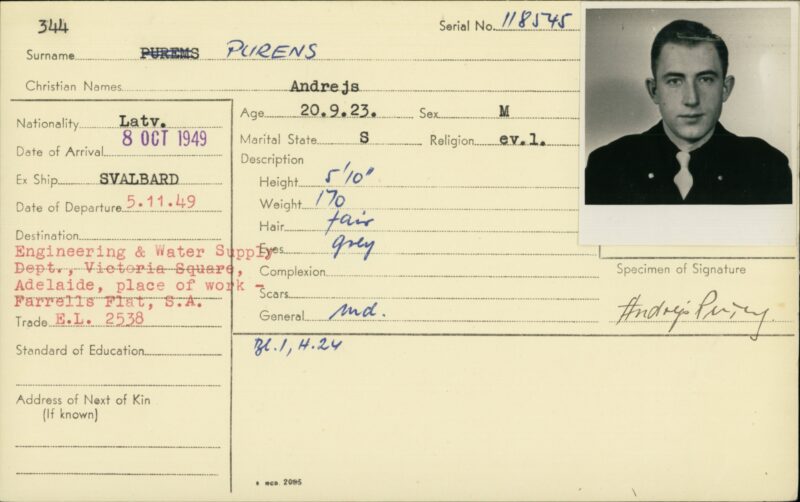 344
Serial No. 118545
Surname PUREMS PURENS
Christian Names Andrejs
Nationality Latv.
Date of Arrival 8 OCT 1949
Ex Ship SVALBARD
Date of Departure 5.11.49
Destination
Engineering & Water Supply
Dept., Victoria Square,
Adelaide, place of work -
Farrells Flat, S.A.
Trade E.L. 2538
Standard of Education
Address of Next of Kin
(If known)
Age 20.9.23. Sex M
Marital State S Religion ev.l.
Description
Height 5'10"
Weight 170
Hair fair
Eyes grey
Complexion
Scars
General md.
Bl.1, H.24
Specimen of Signature
Andrejs Purens
2095